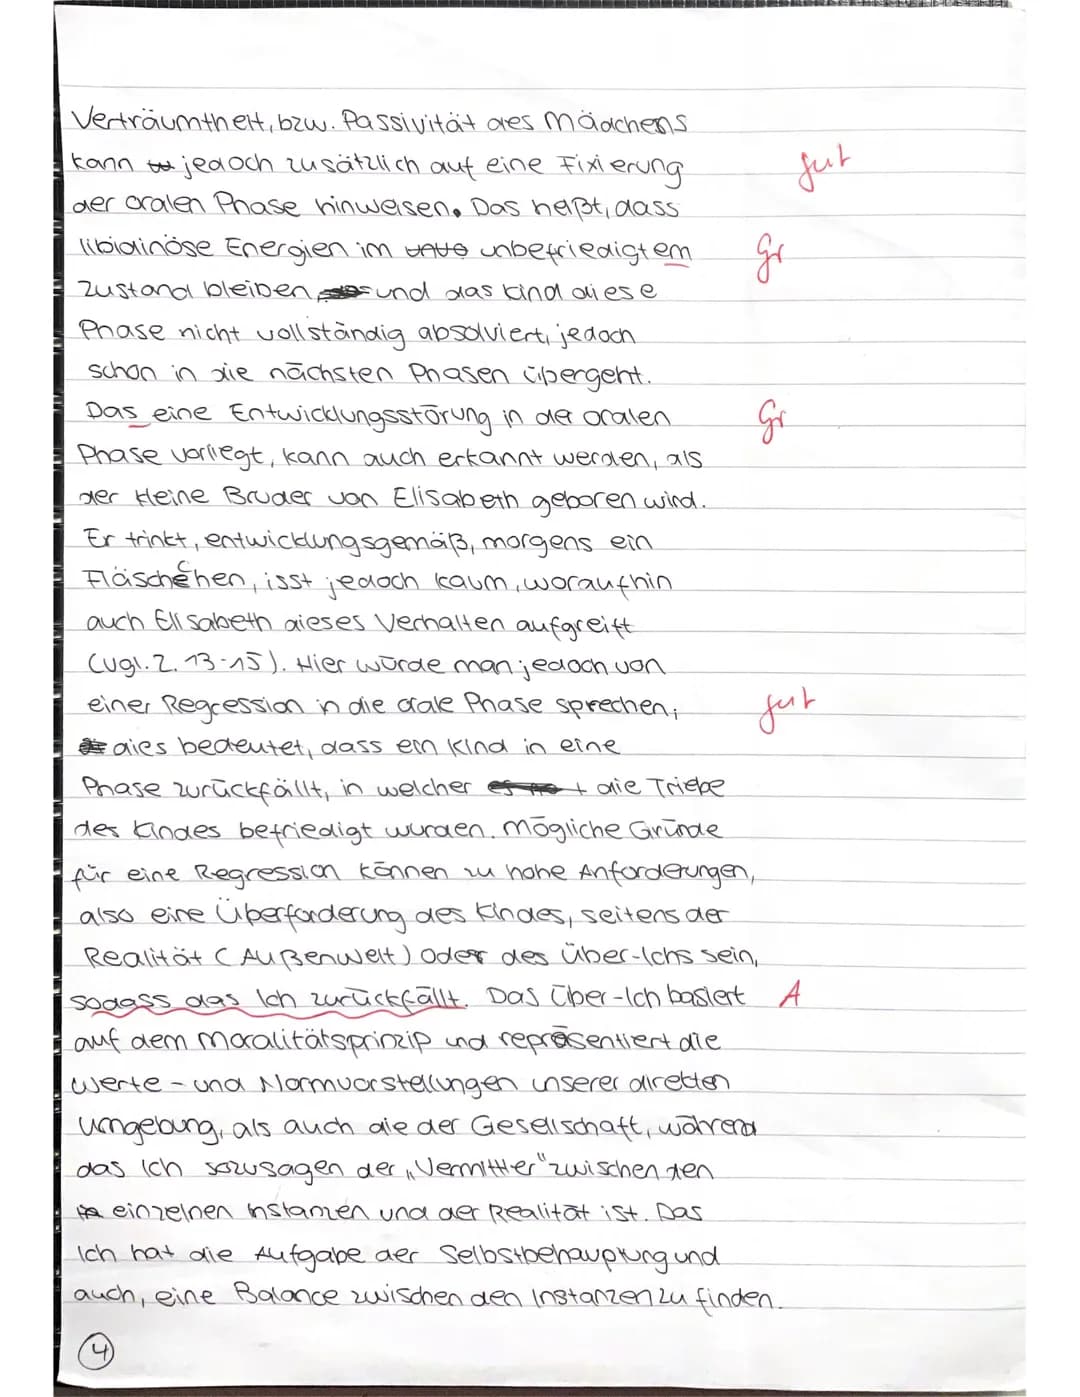 Verträumtheit, bzw. Passivität des Mädchens
kann jedoch zusätzlich auf eine Fixierung gut
der oralen Phase hinweisen. Das heißt, dass
libidinöse Energien im unbefriedigtem Gr
Zustand bleiben und das Kind diese
Phase nicht vollständig absolviert, jedoch
schon in die nächsten Phasen übergeht.
Das eine Entwicklungsstörung in der oralen Gr
Phase vorliegt, kann auch erkannt werden, als
der kleine Bruder von Elisabeth geboren wird.
Er trinkt, entwicklungsgemäß, morgens ein
Fläschchen, isst jedoch kaum, woraufhin
auch Elisabeth dieses Verhalten aufgreift
(vgl. Z. 13-15). Hier würde man jedoch von
einer Regression in die orale Phase sprechen; gut
dies bedeutet, dass ein Kind in eine
Phase zurückfällt, in welcher die Triebe
des Kindes befriedigt wurden. Mögliche Gründe
für eine Regression können zu hohe Anforderungen,
also eine Überforderung des Kindes, seitens der
Realität (Außenwelt) oder des Über-Ichs sein,
sodass das Ich zurückfällt. Das Über-Ich basiert A
auf dem Moralitätsprinzip und repräsentiert die
Werte- und Normvorstellungen unserer direkten
Umgebung, als auch die der Gesellschaft, während
das Ich sozusagen der „Vermittler" zwischen den
einzelnen Instanzen und der Realität ist. Das
Ich hat die Aufgabe der Selbstbehauptung und
auch, eine Balance zwischen den Instanzen zu finden.
4